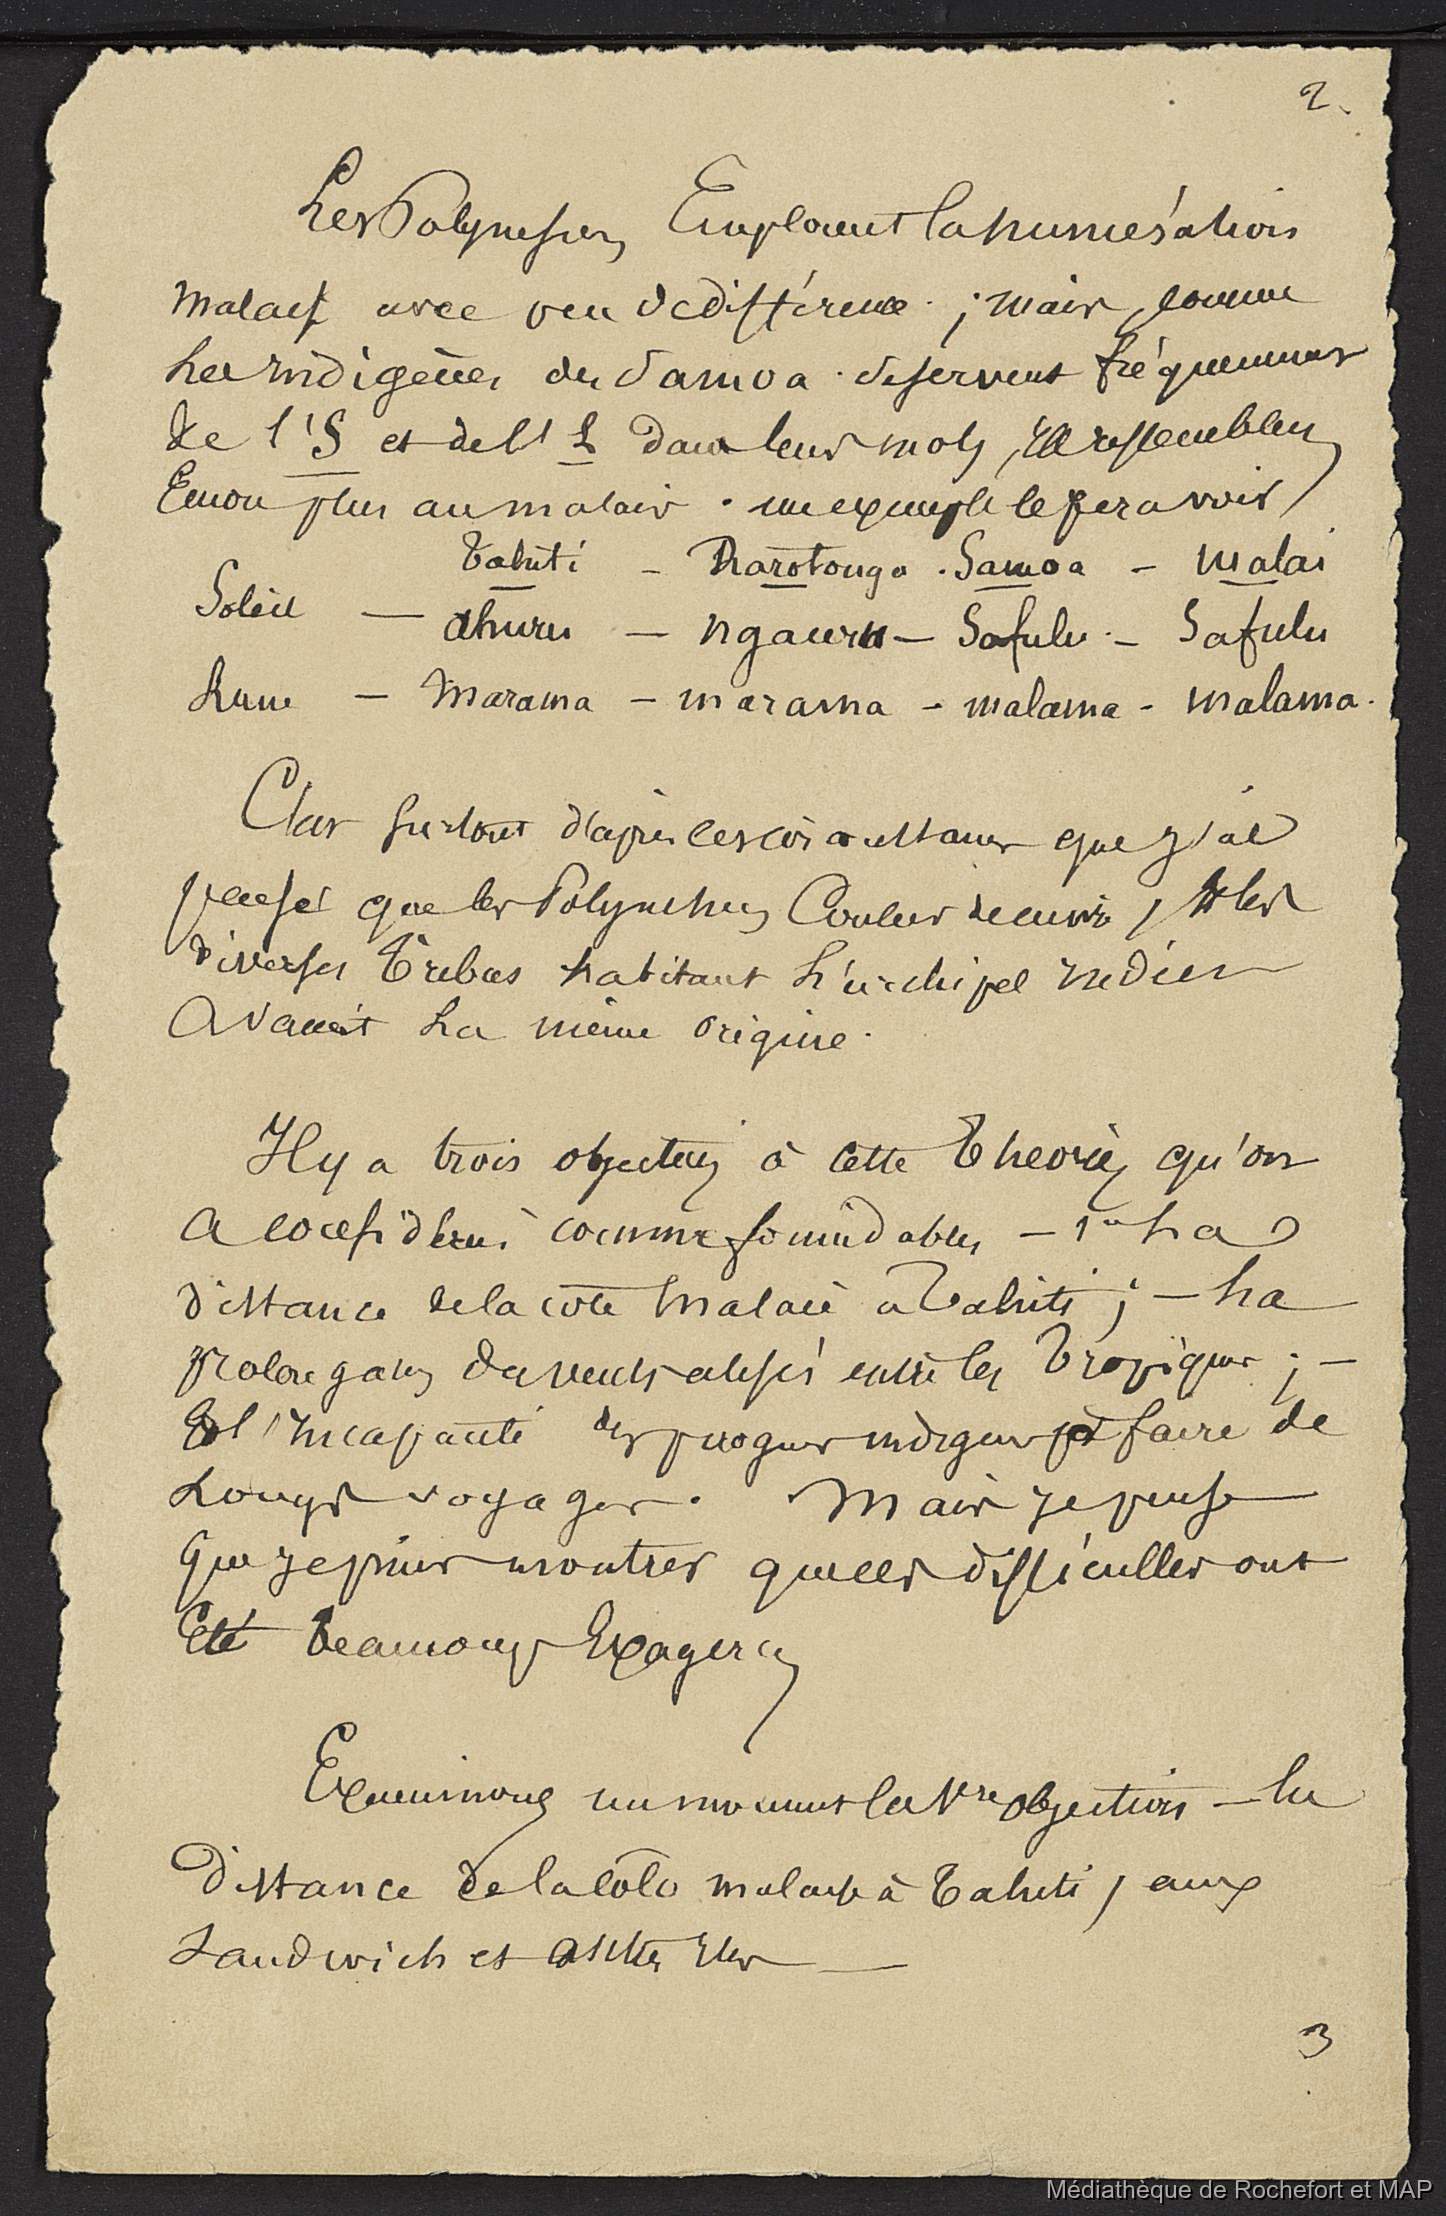 2.
Les Polynesiens Emploient la numération
malaise avec peu de différence ; mais comme
les indigènes des Samoa se servent fréquemment
de l'S et de l'L dans leurs mots, ils ressemblent
Encore plus au malais. un exemple le fera voir
Tahiti - Rarotonga - Samoa - Malai
Soleil — ahuru — ngauru — Safulu - Safulu
Lune — Marama - marama - malama - malama.
C'est surtout d'après ces circonstances que j'ai
pensé que les Polynesiens Couleur de cuivre, et les
diverses Tribus habitant L'archipel indien
Avaient La même origine.
Il y a trois objections à cette Theorie, qu'on
a considéré comme formidables - 1° La
distance de la côte Malaie à Tahiti ; — La
prolongation des vents alisés entre les Tropiques ; —
Et l'incapacité des pirogues indigenes à faire de
Longs voyages. Mais je pense
que je puis montrer que ces difficultés ont
Eté beaucoup Exagerées
Examinons un moment la 1re objection — la
distance de la côte malaise à Tahiti, aux
Sandwich et autres iles —
3
Médiathèque de Rochefort et MAP